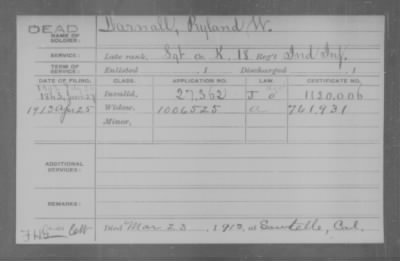 DEAD
NAME OF SOLDIER: Darnall, Ryland W.
SERVICE: Late rank, Sgt Co. K, 18 Reg't Ind Inf.
TERM OF SERVICE: Enlisted , 1 Discharged , 1
DATE OF FILING. CLASS. APPLICATION NO. CERTIFICATE NO.
1863, Invalid, 27,362 1120,006
1912 Apr 25 Widow, 1006525 a 761,931
Minor,
ADDITIONAL SERVICES:
REMARKS:
Died Mar 23 1912, at Sawtelle, Cal.